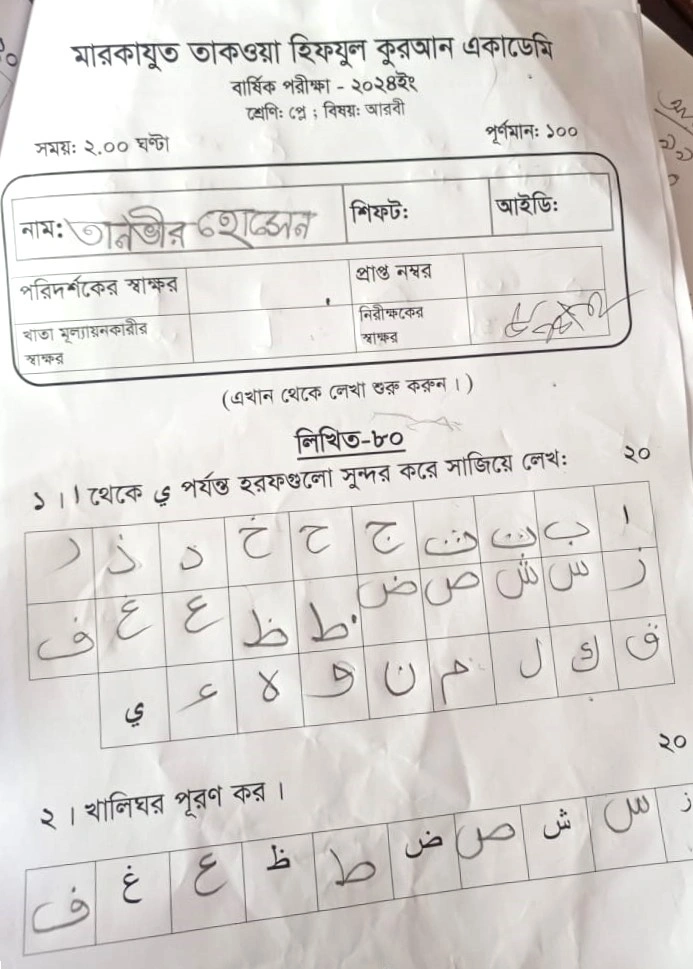 মারকাযুত তাকওয়া হিফযুল কুরআন একাডেমি
বার্ষিক পরীক্ষা - ২০২৪ইং
শ্রেণি: প্লে ; বিষয়: আরবী
সময়: ২.০০ ঘন্টা পূর্ণমান: ১০০
নাম: তানভীর হোসেন শিফট: আইডি:
পরিদর্শকের স্বাক্ষর প্রাপ্ত নম্বর
খাতা মূল্যায়নকারীর স্বাক্ষর নিরীক্ষকের স্বাক্ষর
(এখান থেকে লেখা শুরু করুন ।)
লিখিত-৮০
১ । ا থেকে ي পর্যন্ত হরফগুলো সুন্দর করে সাজিয়ে লেখ: ২০
ا ب ت ث ج ح خ د ذ ر
ز س ش ص ض ط ظ ع غ ف
ق ك ل م ن و ه ء ي
২ । খালিঘর পূরণ কর । ২০
ز س ش ص ض ط ظ ع غ ف